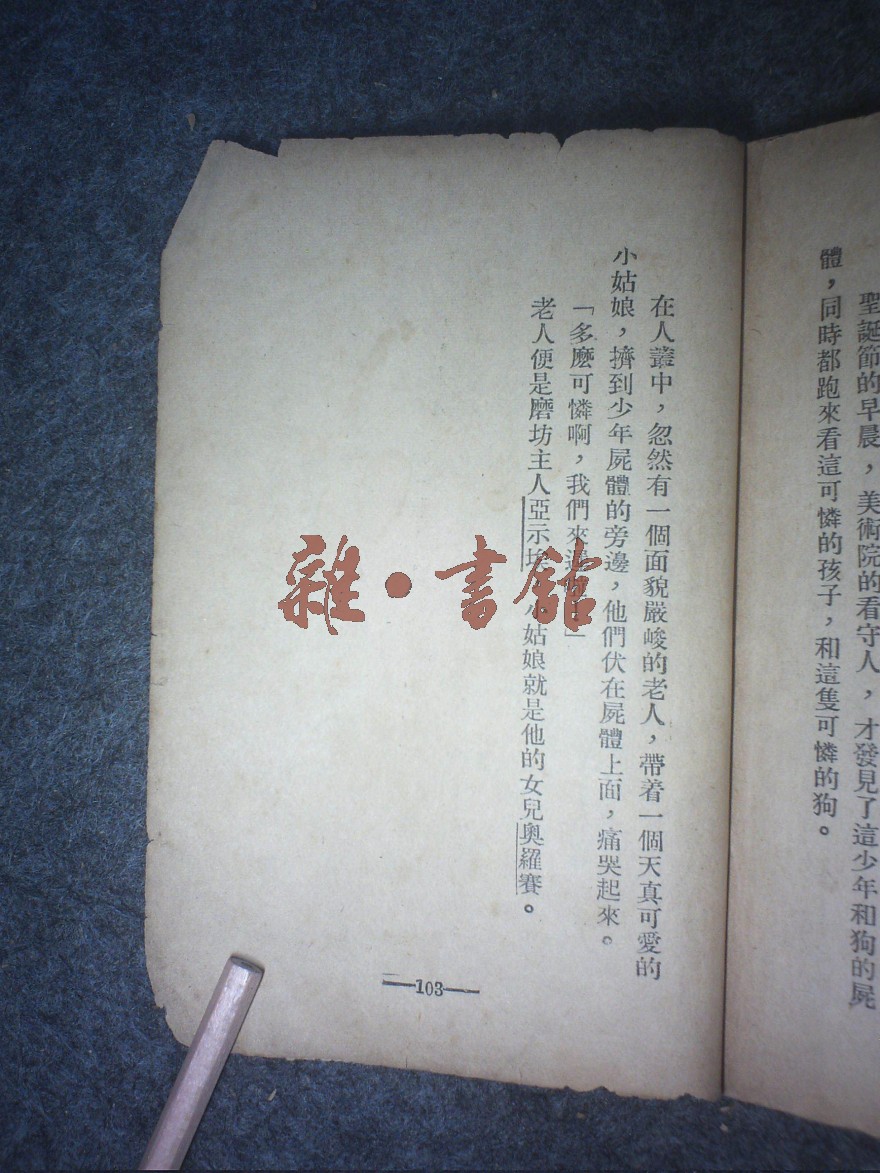 聖誕節的早晨，美術院的看守人，才發見了這少年和狗的屍
體，同時都跑來看這可憐的孩子，和這隻可憐的狗。
在人叢中，忽然有一個面貌嚴峻的老人，帶着一個天真可愛的
小姑娘，擠到少年屍體的旁邊，他們伏在屍體上面，痛哭起來。
「多麽可憐啊，我們來遲」
老人便是磨坊主人亞示埃小姑娘就是他的女兒奥羅賽。
—103—
雜·書館